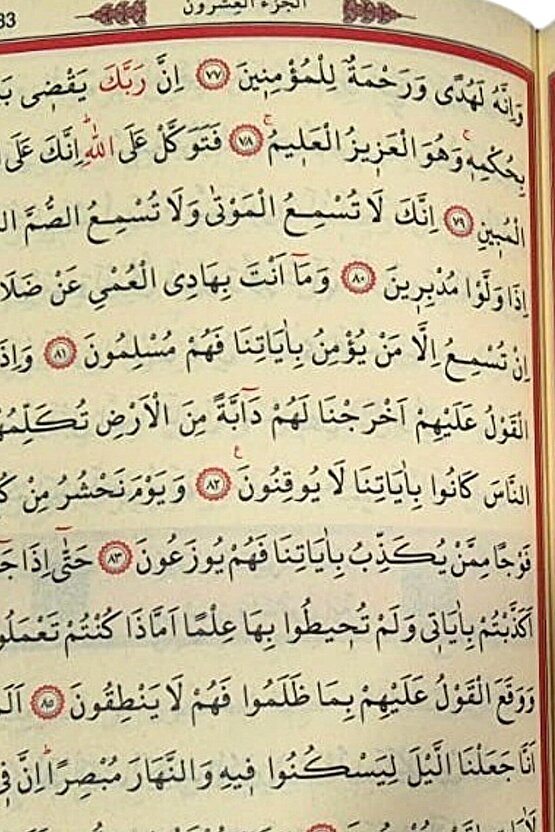 الجزء العشرون
83
وَاِنَّهُ لَهُدًى وَرَحْمَةٌ لِلْمُؤْمِنٖينَ ﴿٧٧﴾ اِنَّ رَبَّكَ يَقْضٖى
بِحُكْمِهٖۚ وَهُوَ الْعَزٖيزُ الْعَلٖيمُۚ ﴿٧٨﴾ فَتَوَكَّلْ عَلَى اللّٰهِؕ اِنَّكَ عَلَى
الْمُبٖينِ ﴿٧٩﴾ اِنَّكَ لَا تُسْمِعُ الْمَوْتٰى وَلَا تُسْمِعُ الصُّمَّ
اِذَا وَلَّوْا مُدْبِرٖينَ ﴿٨٠﴾ وَمَٓا اَنْتَ بِهَادِى الْعُمْىِ عَنْ
اِنْ تُسْمِعُ اِلَّا مَنْ يُؤْمِنُ بِاٰيَاتِنَا فَهُمْ مُسْلِمُونَ ﴿٨١﴾ وَاِذَا
الْقَوْلُ عَلَيْهِمْ اَخْرَجْنَا لَهُمْ دَٓابَّةً مِنَ الْاَرْضِ تُكَلِّمُهُ
النَّاسَ كَانُوا بِاٰيَاتِنَا لَا يُوقِنُونَࣖ ﴿٨٢﴾ وَيَوْمَ نَحْشُرُ مِنْ
فَوْجًا مِمَّنْ يُكَذِّبُ بِاٰيَاتِنَا فَهُمْ يُوزَعُونَ ﴿٨٣﴾ حَتّٰٓى اِذَا
اَكَذَّبْتُمْ بِاٰيَاتٖى وَلَمْ تُحٖيطُوا بِهَا عِلْمًا اَمَّاذَا كُنْتُمْ تَعْمَلُو
وَوَقَعَ الْقَوْلُ عَلَيْهِمْ بِمَا ظَلَمُوا فَهُمْ لَا يَنْطِقُونَ ﴿٨٥﴾
اَنَّا جَعَلْنَا الَّيْلَ لِيَسْكُنُوا فٖيهِ وَالنَّهَارَ مُبْصِرًاؕ اِنَّ فٖى